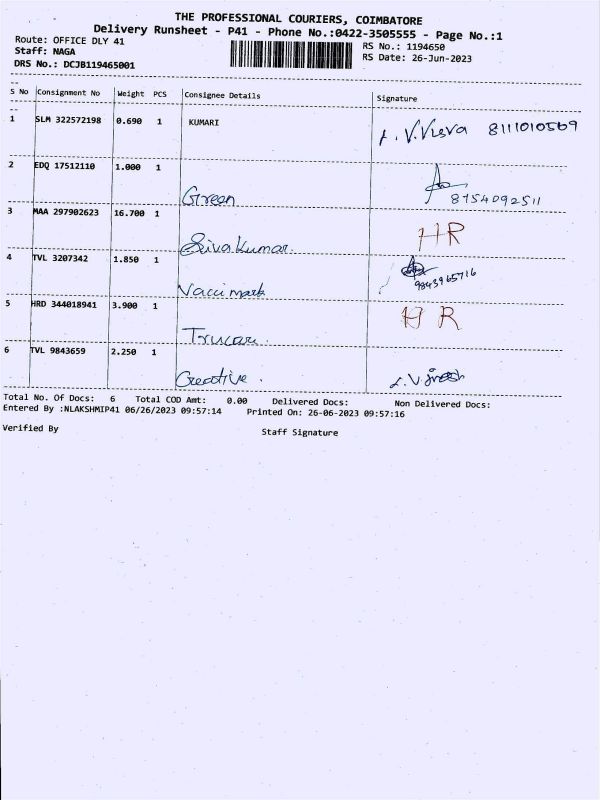 THE PROFESSIONAL COURIERS, COIMBATORE
Delivery Runsheet - P41 - Phone No.:0422-3505555 - Page No.:1
Route: OFFICE DLY 41
RS No.: 1194650
Staff: NAGA
RS Date: 26-Jun-2023
DRS No.: DCJB119465001
S No Consignment No Weight PCS Consignee Details Signature
1 SLM 322572198 0.690 1 KUMARI 8111010569
2 EDQ 17512110 1.000 1 Green 8754092511
3 MAA 297902623 16.700 1 Sivakumar. HR
4 TVL 3207342 1.850 1 Vaccimark 9843965716
5 HRD 344018941 3.900 1 HR
6 TVL 9843659 2.250 1 Creative.
Total No. Of Docs: 6 Total COD Amt: 0.00 Delivered Docs: Non Delivered Docs:
Entered By :NLAKSHMIP41 06/26/2023 09:57:14 Printed On: 26-06-2023 09:57:16
Verified By Staff Signature